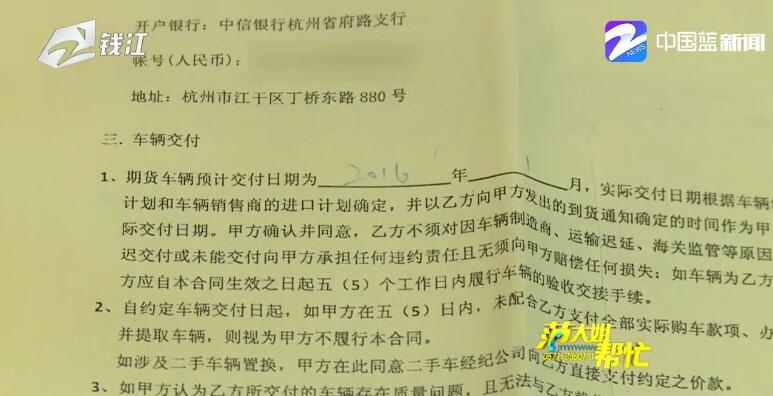 钱江
中国蓝新闻
NEWS
开户银行：中信银行杭州省府路支行
帐号(人民币)：
地址：杭州市江干区丁桥东路 880 号
三. 车辆交付
1、期货车辆预计交付日期为 2016 年 1 月，实际交付日期根据车辆
计划和车辆销售商的进口计划确定，并以乙方向甲方发出的到货通知确定的时间作为甲
际交付日期。甲方确认并同意，乙方不须对因车辆制造商、运输迟延、海关监管等原因
迟交付或未能交付向甲方承担任何违约责任且无须向甲方赔偿任何损失；如车辆为乙方
方应自本合同生效之日起五（5）个工作日内履行车辆的验收交接手续。
2、自约定车辆交付日起，如甲方在五（5）日内，未配合乙方支付全部实际购车款项、办
并提取车辆，则视为甲方不履行本合同。
如涉及二手车辆置换，甲方在此同意二手车经纪公司向乙方直接支付约定之价款。
3、如甲方认为乙方所交付的车辆存在质量问题，且无法与乙方
范大姐
帮忙